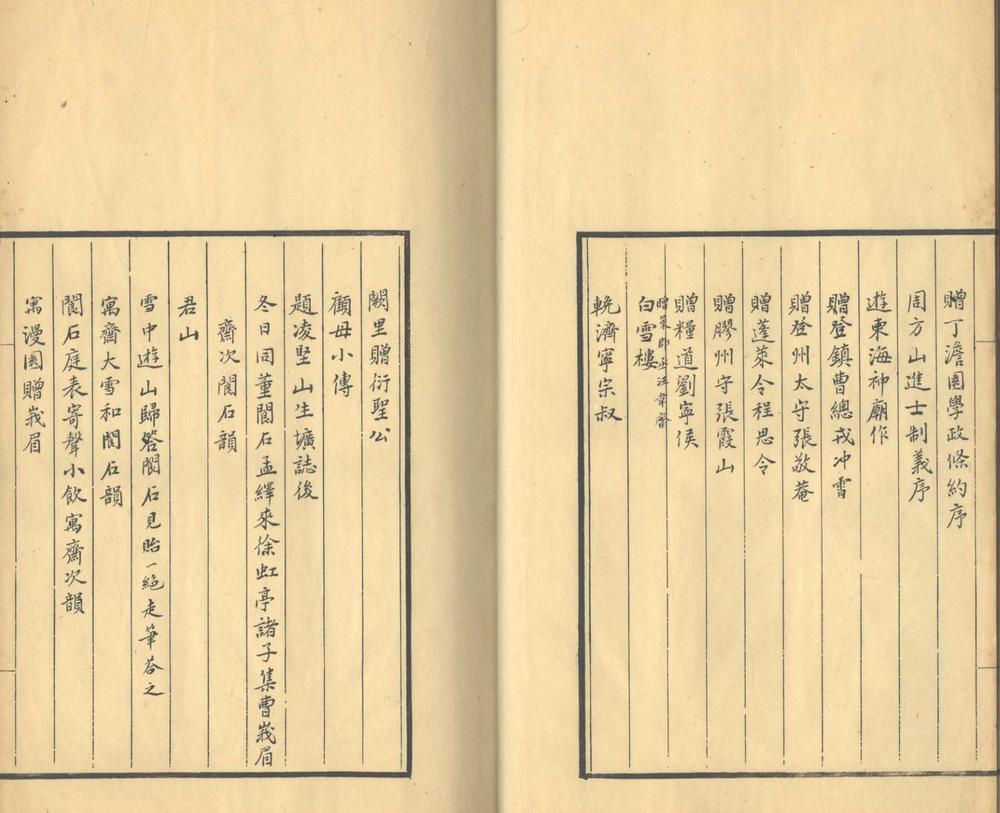 贈丁澹園學政條約序
周方山進士制義序
遊東海神廟作
贈登鎮曹總戎冲雪
贈登州太守張敬菴
贈蓬萊令程思令
贈膠州守張霞山
贈糧道劉寧侯
贈萊郡丞汪韋齋
白雪樓
輓濟寧宗叔
闕里贈衍聖公
顧母小傳
題凌堅山生壙誌後
冬日同董閬石孟繹來徐虹亭諸子集曹峩眉
齋次閬石韻
君山
雪中遊山歸客閬石見貽一絕走筆荅之
寓齋大雪和閬石韻
閬石庭表寄聲小飲寓齋次韻
寓漫園贈峩眉